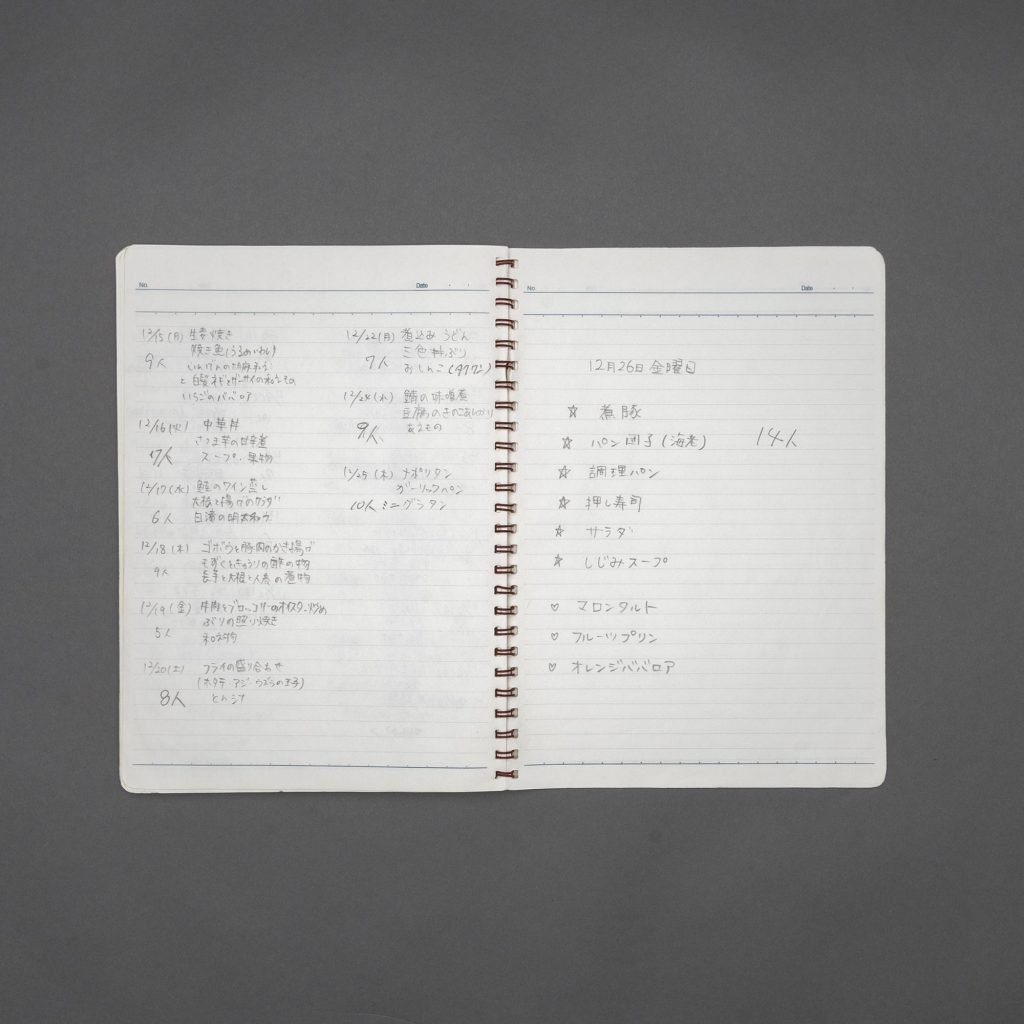 No.
Date
12/15(月) 生姜焼き
9人 焼き魚(うるめいわし)
いんげんの胡麻和え
いちごのババロア
12/16(火) 中華丼
さつま芋の甘辛煮
7人 スープ・果物
12/17(水) 鮭のワイン蒸し
大根と揚げのサラダ
6人 白滝の明太和え
12/18(木) ゴボウと豚肉のかき揚げ
9人 もずくときゅうりの酢の物
長芋と大根と人参の煮物
12/19(金) 牛肉とブロッコリーのオイスター炒め
5人 ぶりの照り焼き
12/20(土) フライの盛り合わせ
(ホタテ・アジ・ウズラの玉子)
8人 とん汁
12/22(月) 煮込みうどん
三色丼ぶり
7人 おしんこ(タクワン)
12/24(水) 鯖の味噌煮
豆腐のきのこあんかけ
9人 あえもの
12/25(木) ナポリタン
ガーリックパン
10人 ミニグラタン
No.
Date
12月26日 金曜日
☆ 煮豚
☆ パン団子(海老) 14人
☆ 調理パン
☆ 押し寿司
☆ サラダ
☆ しじみスープ
♡ マロンタルト
♡ フルーツプリン
♡ オレンジババロア